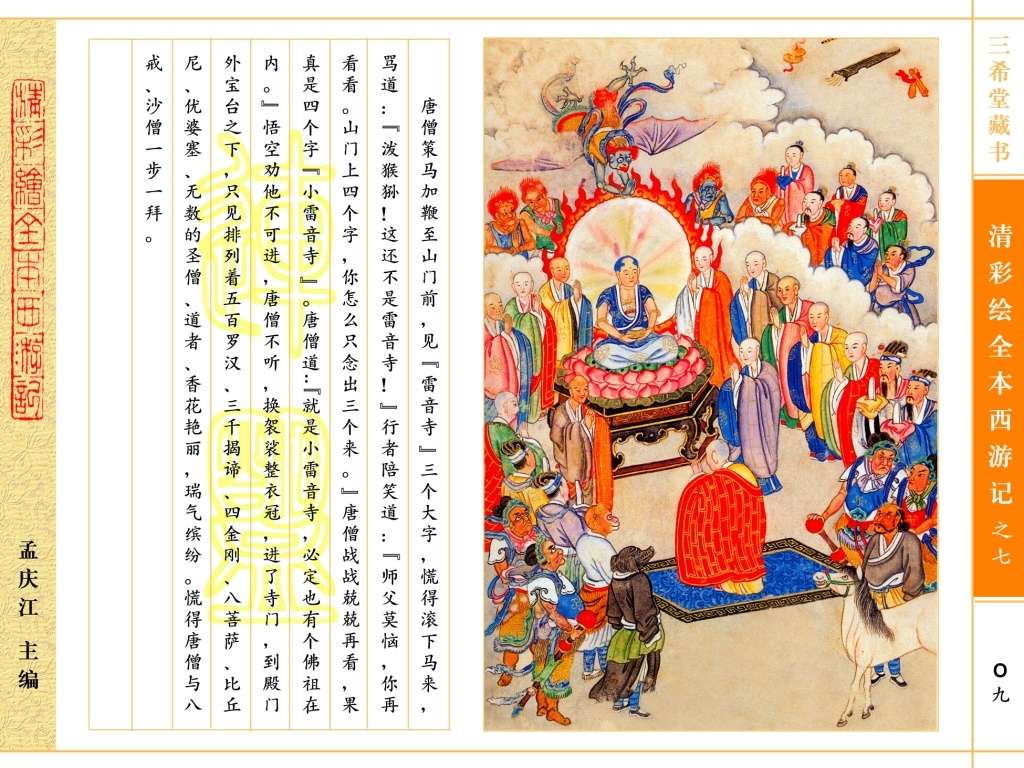 三希堂藏书
清彩绘全本西游记之七
〇九
唐僧策马加鞭至山门前，见『雷音寺』三个大字，慌得滚下马来，
骂道：『泼猴狲！这还不是雷音寺！』行者陪笑道：『师父莫恼，你再
看看。山门上四个字，你怎么只念出三个来。』唐僧战战兢兢再看，果
真是四个字『小雷音寺』。唐僧道：『就是小雷音寺，必定也有个佛祖在
内。』悟空劝他不可进，唐僧不听，换袈裟整衣冠，进了寺门，到殿门
外宝台之下，只见排列着五百罗汉、三千揭谛、四金刚、八菩萨、比丘
尼、优婆塞、无数的圣僧、道者、香花艳丽，瑞气缤纷。慌得唐僧与八
戒、沙僧一步一拜。
精彩繪全本西游記
孟庆江 主编